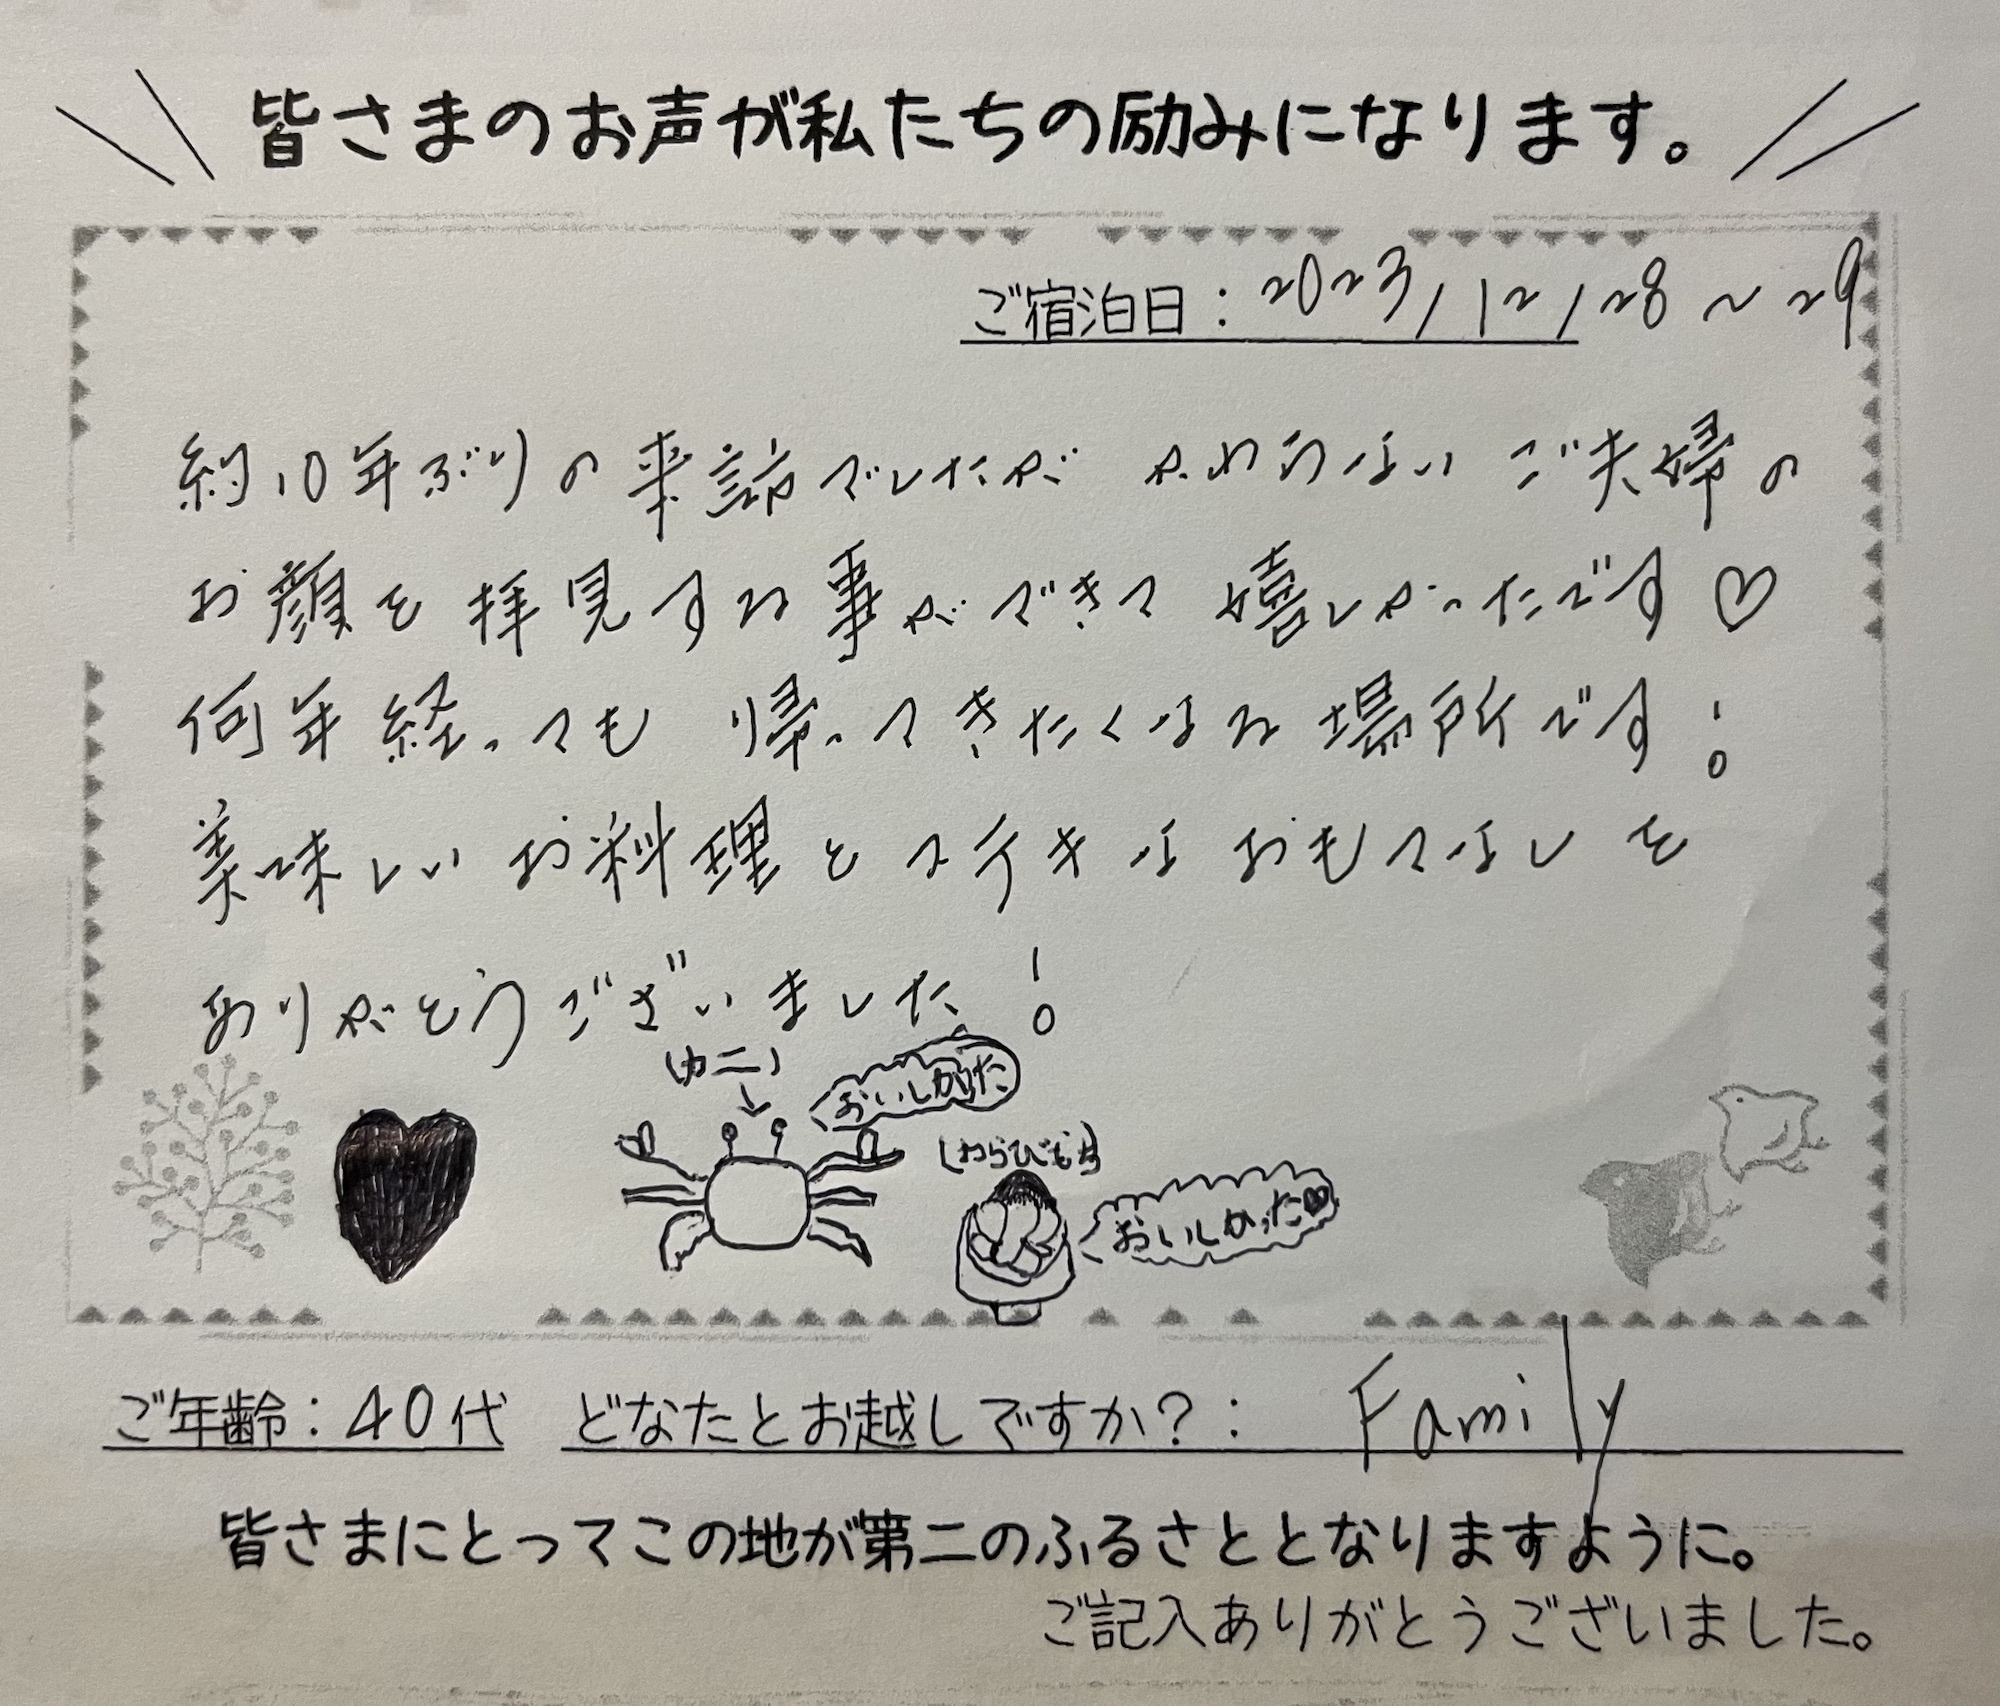 皆さまのお声が私たちの励みになります。
ご宿泊日：2023/12/28～29
約10年ぶりの来訪でしたが かわらない ご夫婦の
お顔を拝見する事ができて 嬉しかったです♡
何年経っても 帰ってきたくなる場所です!
美味しい お料理と ステキなおもてなしを
ありがとうございました!
(カニ)
おいしかった
(わらびもち)
おいしかった♡
ご年齢：40代 どなたとお越しですか？： Family
皆さまにとってこの地が第二のふるさととなりますように。
ご記入ありがとうございました。